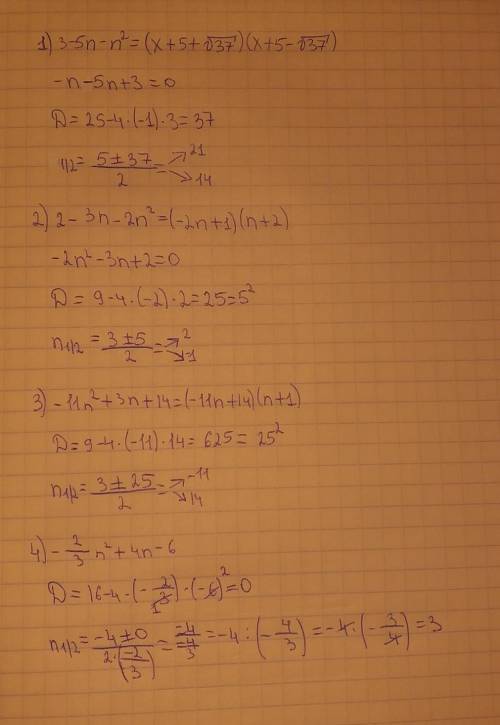 1) 3-5n-n²=(x+5+√37)(x+5-√37)
-n-5n+3=0
D=25-4·(-1)·3=37
n/2=(5±37)/2= ↗21 ↘14
2) 2-3n-2n²=(-2n+1)(n+2)
-2n²-3n+2=0
D=9-4·(-2)·2=25=5²
n1/2=(3±5)/2= ↗2 ↘-1
3) -11n²+3n+14=(-11n+14)(n+1)
D=9-4·(-11)·14=625=25²
n1/2=(3±25)/2= ↗-11 ↘14
4) -2/3n²+4n-6
D=16-4·(-2/3)·(-6)=0
n1/2=(-4±0)/(2·(-2/3))=(-4)/(-4/3)=-4:(-4/3)=-4·(-3/4)=3